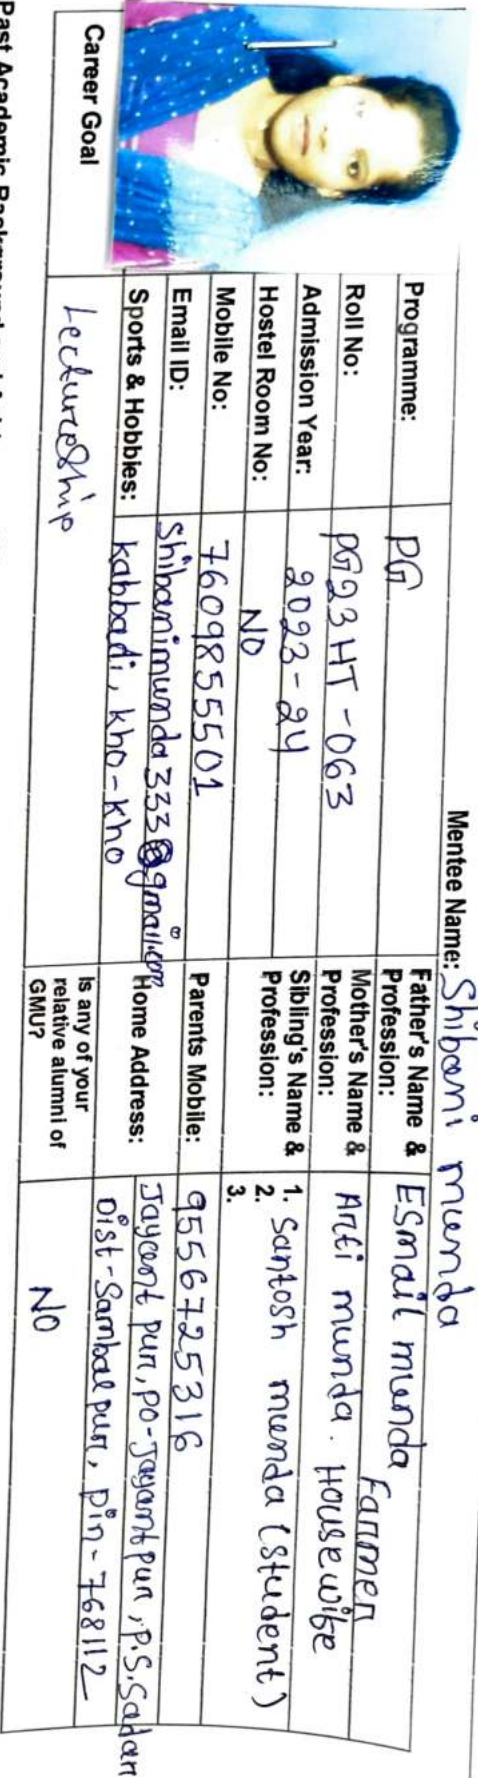 Mentee Name: Shibani munda
Programme: PG
Father's Name & Profession: ESmail munda Farmer
Roll No: PG23HT-063
Mother's Name & Profession: Arti munda. Housewife
Admission Year: 2023-24
Sibling's Name & Profession: 1.
2. Santosh munda (Student)
3.
Hostel Room No: NO
Mobile No: 7609855501
Parents Mobile: 9556725316
Email ID: Shibanimunda333@gmail.com
Home Address: Jayant pur, PO-Jayantpur, P.S.Sadar
Dist-Sambalpur, Pin-768112
Sports & Hobbies: Kabbadi, kho-kho
Career Goal Lectureship
Is any of your relative alumni of GMU? NO
Past Academic Background